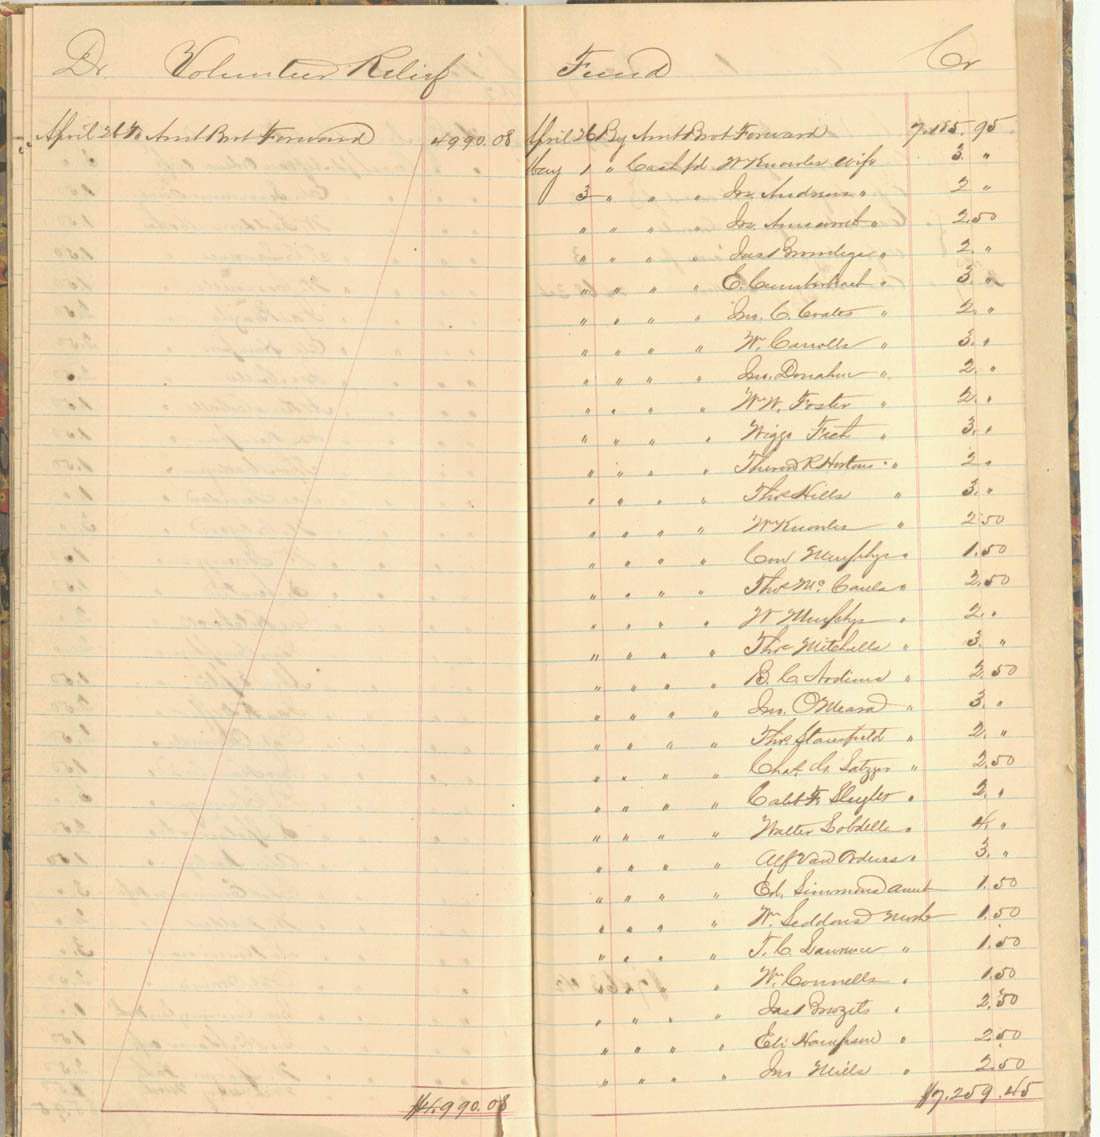 Dr. Volunteer Relief Fund Cr
April 26 To Amt Brot Forward 4990.08
April 26 By Amt Brot Forward 7.185.95
May 1 " Cash pd W Knowles Wife 3. "
3 " " " Jno. Andrews " 2 "
" " " " Jno. " 2.50
" " " " Jas " 2. "
" " " " E. " 3. "
" " " " Jno. C. Coates " 2. "
" " " " Wm Carrolls " 3. "
" " " " Jno. Donahue " 2. "
" " " " Wm W. Foster " 2. "
" " " " Wiggo " 3. "
" " " " R Hortons " 2 "
" " " " Thos Hills " 3. "
" " " " W Knowles " 2.50
" " " " Con Murphys " 1.50
" " " " Thos Mc Cauls " 2.50
" " " " W Murphys " 2. "
" " " " Thos Mitchells " 3. "
" " " " B. C. " 2.50
" " " " Jno. O'Meara " 3. "
" " " " Thos. Stansfield " 2. "
" " " " Chas. G. " 2.50
" " " " Caleb F. Sleights " 2. "
" " " " Walter Lobdells " 4. "
" " " " Alf Van Orders " 3. "
" " " " Ed. Simmons Aunt 1.50
" " " " Wm Seddons Moth 1.50
" " " " T. C. Lawrence " 1.50
" " " " Wm Connells " 1.50
" " " " Jas " 2.50
" " " " Eli Hampson " 2.50
" " " " Jno Mills " 2.50
$4,990.08 $7.259.45